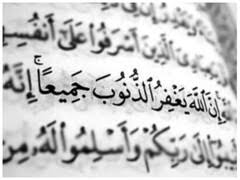 ٱلَّذِينَ أَسْرَفُوا۟ عَلَىٰٓ أَنفُسِ
إِنَّ ٱللَّهَ يَغْفِرُ ٱلذُّنُوبَ جَمِيعًا ۚ إِنَّهُ
يبُوٓا۟ إِلَىٰ رَبِّكُمْ وَأَسْلِمُوا۟ لَهُۥ مِن